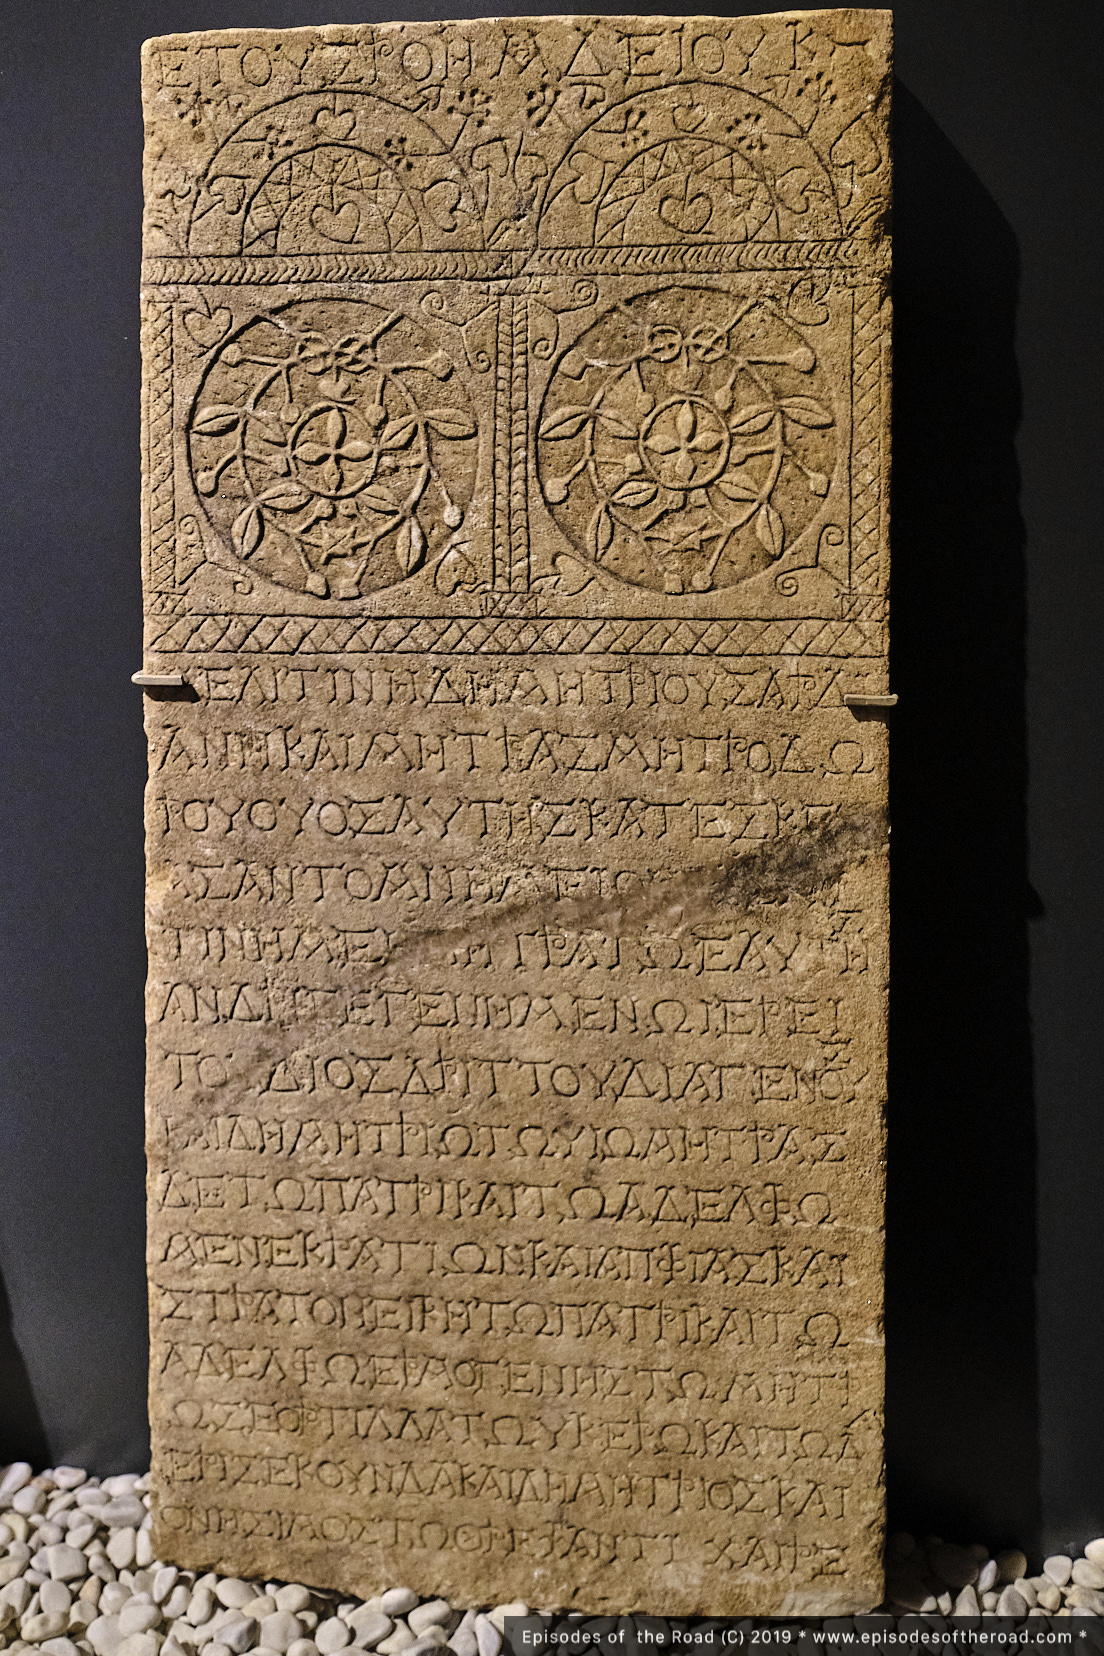 ΕΤΟΥΣ ΡΟΗ Μ ΔΕΙΟΥ Κ
ΜΕΛΙΤΙΝΗ ΔΗΜΗΤΡΙΟΥ ΣΑΡΔ
ΑΝΗ ΚΑΙ ΜΗΤΡΑΣ ΜΗΤΡΟΔΩ
ΡΟΥ ΟΥΟΣ ΑΥΤΗΣ ΚΑΤΕΣΚΕΥ
ΑΣΑΝ ΤΟ ΜΝΗΜΕΙΟΝ
ΤΙΝΗ ΜΕΝ
ΑΝΔΡΙ ΓΕΓΕΝΗΜΕΝΩ ΙΕΡΕΙ
ΤΟΥ ΔΙΟΣ ΔΡΙΤΤΟΥ ΔΙΑ ΓΕΝΟΥ
ΚΑΙ ΔΗΜΗΤΡΙΩ ΤΩ ΥΙΩ ΜΗΤΡΑΣ
ΔΕ ΤΩ ΠΑΤΡΙ ΚΑΙ ΤΩ ΑΔΕΛΦΩ
ΜΕΝΕΚΡΑΤΙΩΝ ΚΑΙ ΑΠΦΙΑΣ ΚΑΙ
ΣΤΡΑΤΟΝΕΙΚΗ ΤΩ ΠΑΤΡΙ ΚΑΙ ΤΩ
ΑΔΕΛΦΩ ΕΡΜΟΓΕΝΗΣ ΤΩ ΜΗΤΡ
ΩΣ ΕΟΡΤΙ ΛΛΑΤΩ ΥΚΕΡΩ ΚΑΙ ΤΩ Δ
ΕΡΙ ΣΕΚΟΥΝΔΑ ΚΑΙ ΔΗΜΗΤΡΙΟΣ ΚΑΙ
ΟΝΗΣΙΜΟΣ ΤΩ ΘΡΕΨΑΝΤΙ ΧΑΙΡΕ
Episodes of the Road (C) 2019 * www.episodesoftheroad.com *